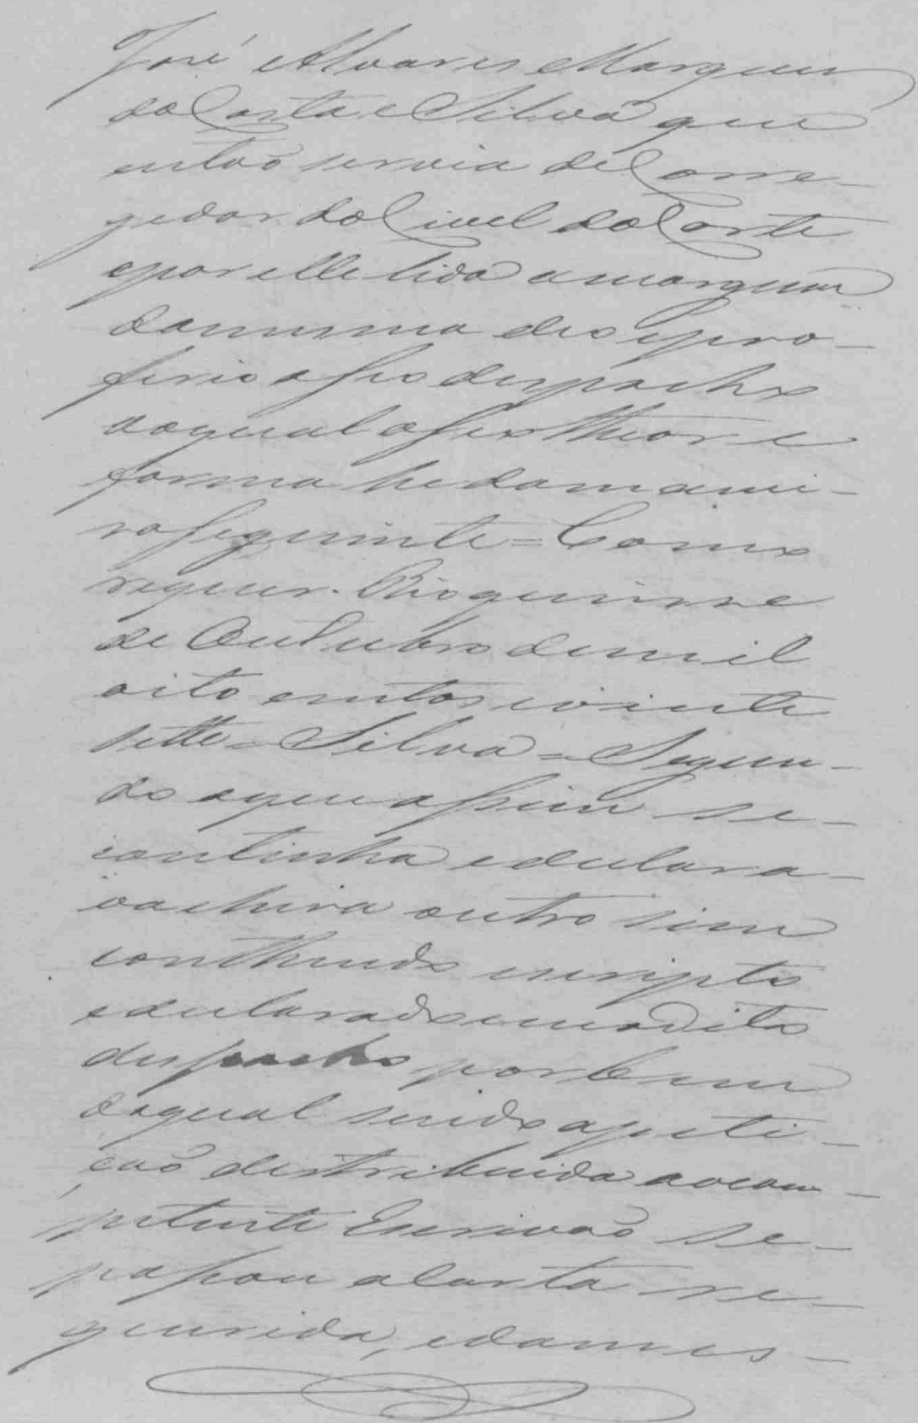 José Alvares Marques
da Costa e Silva que
então servia de Corre-
gedor do Civel da Corte
e por elle lida a margem
da mesma deo e pro-
ferio a seo despacho
do qual o seo theor e
forma he da manei-
ra seguinte = Como
requer. Rio quinse
de Outubro de mil
oito centos e vinte
sette = Silva = Segun-
do a que assim se-
continha e declara-
va e hera outro sim
conthendo escripto
e declarado em o dito
despacho por bem
do qual sendo a peti-
ção destribuida ao com-
petente Escrivão se-
passou a Carta re-
querida, e da mes-